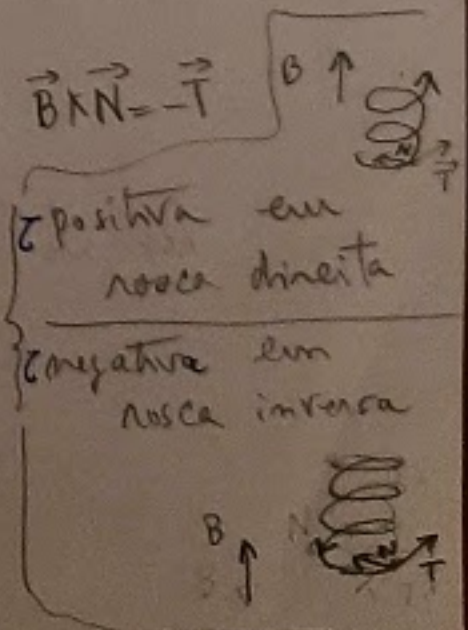 B⃗ × N⃗ = -T⃗
B
N
T⃗
τ positiva em
rosca direita
τ negativa em
rosca inversa
B
N
N
T